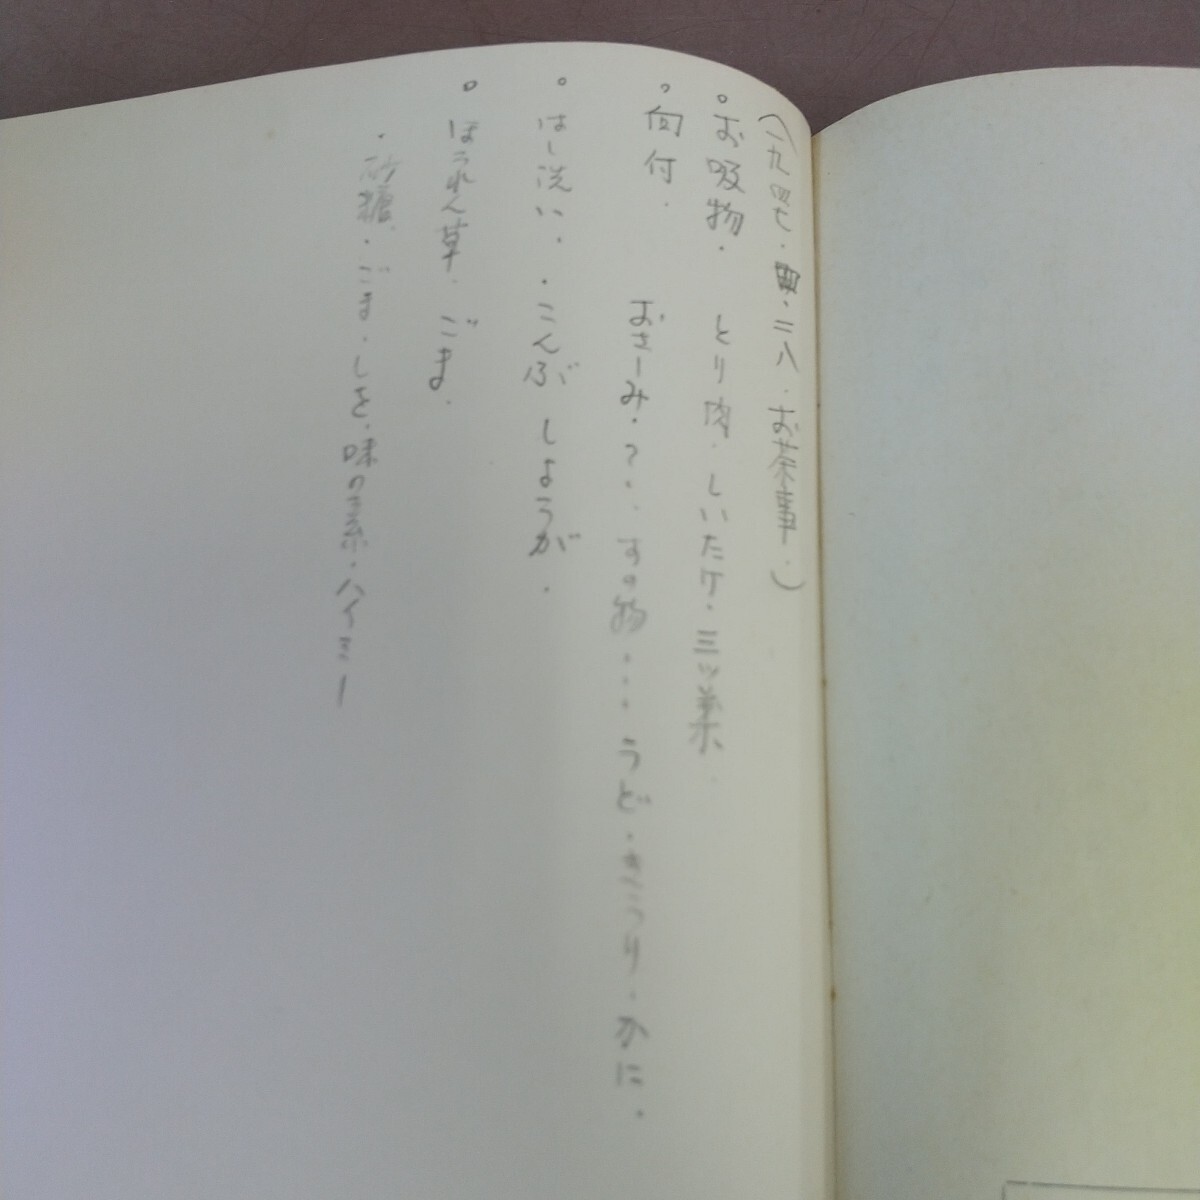 (一九四七・四・二八・お茶事・)
。お吸物・ とり肉・しいたけ・三ツ葉・
。向付・ おさーみ・?・・すの物・・・うど・きうり・かに・
。はし洗い・・こんぶ しょうが・
。ほうれん草・ごま・
・砂糖・ごま・しを・味の素・ハイミー